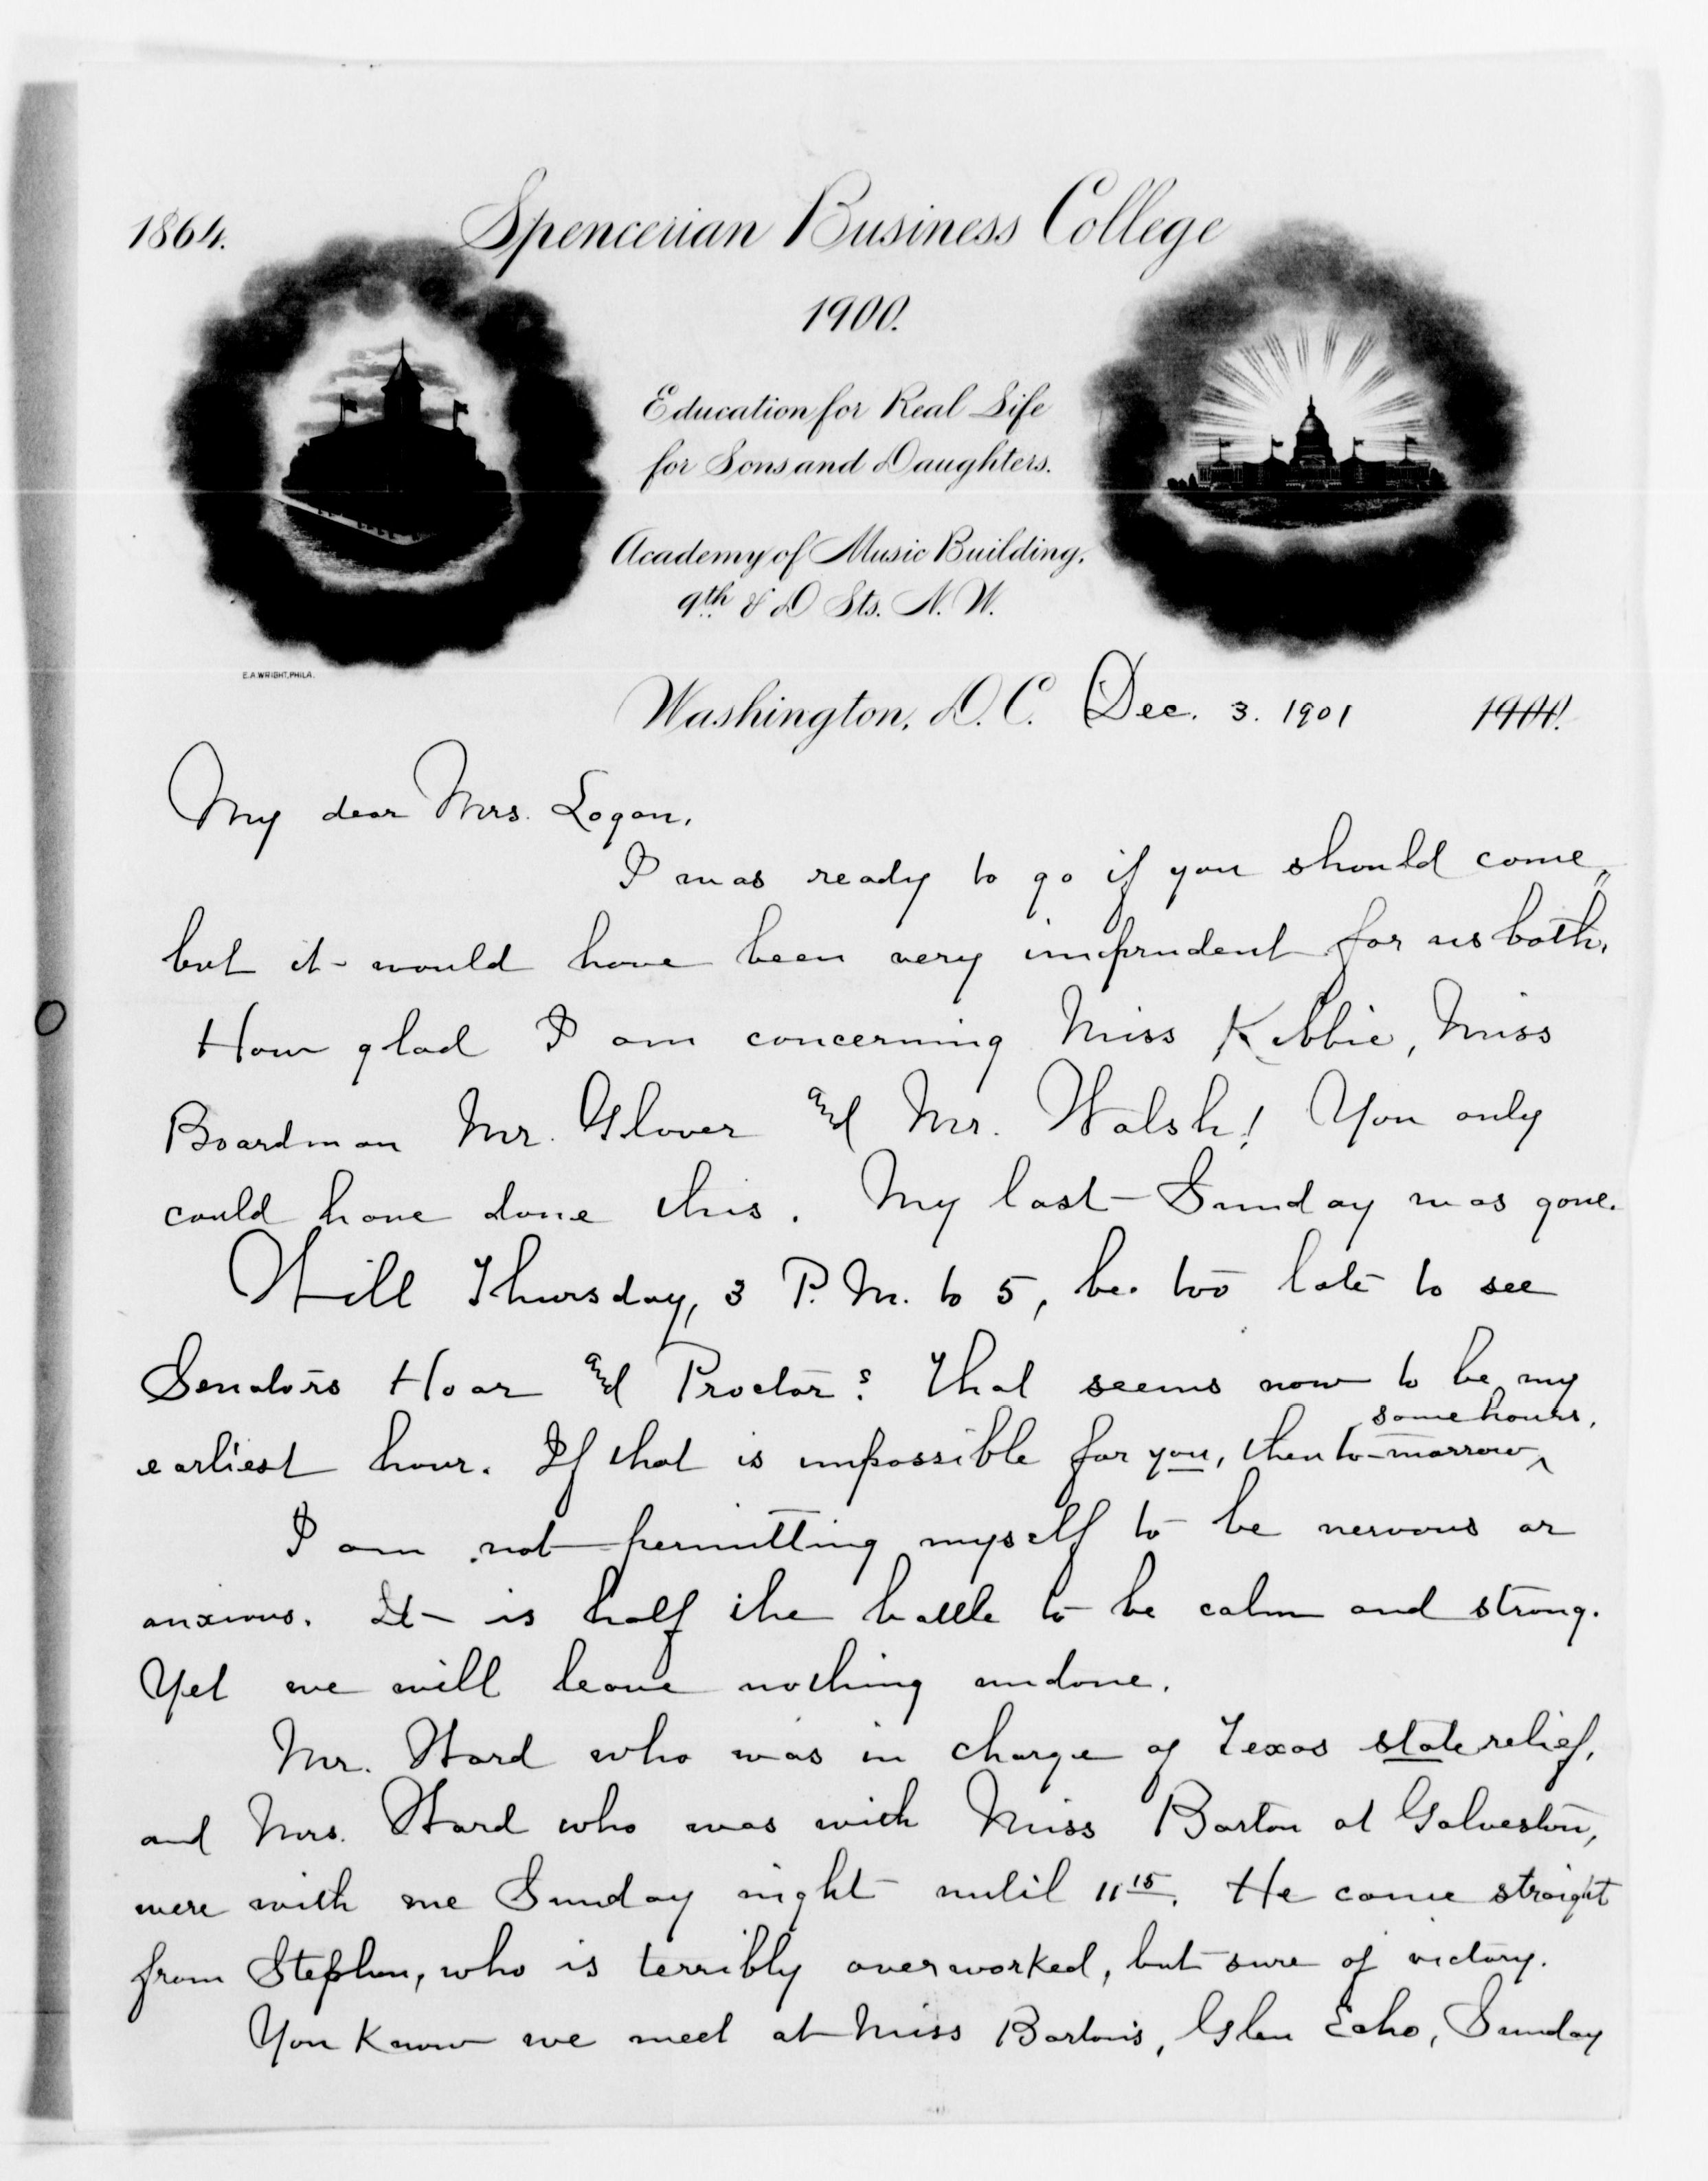 1864.
Spencerian Business College
1900.
Education for Real Life
for Sons and Daughters.
Academy of Music Building,
9th & D Sts. N. W.
E.A.WRIGHT, PHILA.
Washington, D. C. Dec. 3. 1901 190
My dear Mrs. Logan,
I was ready to go if you should come,
but it would have been very imprudent for us both.
How glad I am concerning Miss Kibbie, Miss
Boardman Mr. Glover and Mr. Walsh! You only
could have done this. My last Sunday was gone.
Will Thursday, 3 P.M. to 5, be too late to see
Senators Hoar and Proctor? That seems now to be my
earliest hour. If that is impossible for you, then to-morrow,
same hours.
I am not permitting myself to be nervous or
anxious. It is half the battle to be calm and strong.
Yet we will leave nothing undone.
Mr. Ward who was in charge of Texas state relief,
and Mrs. Ward who was with Miss Barton at Galveston,
were with me Sunday night until 11 15. He came straight
from Stephen, who is terribly overworked, but sure of victory.
You know we meet at Miss Barton's, Glen Echo, Sunday